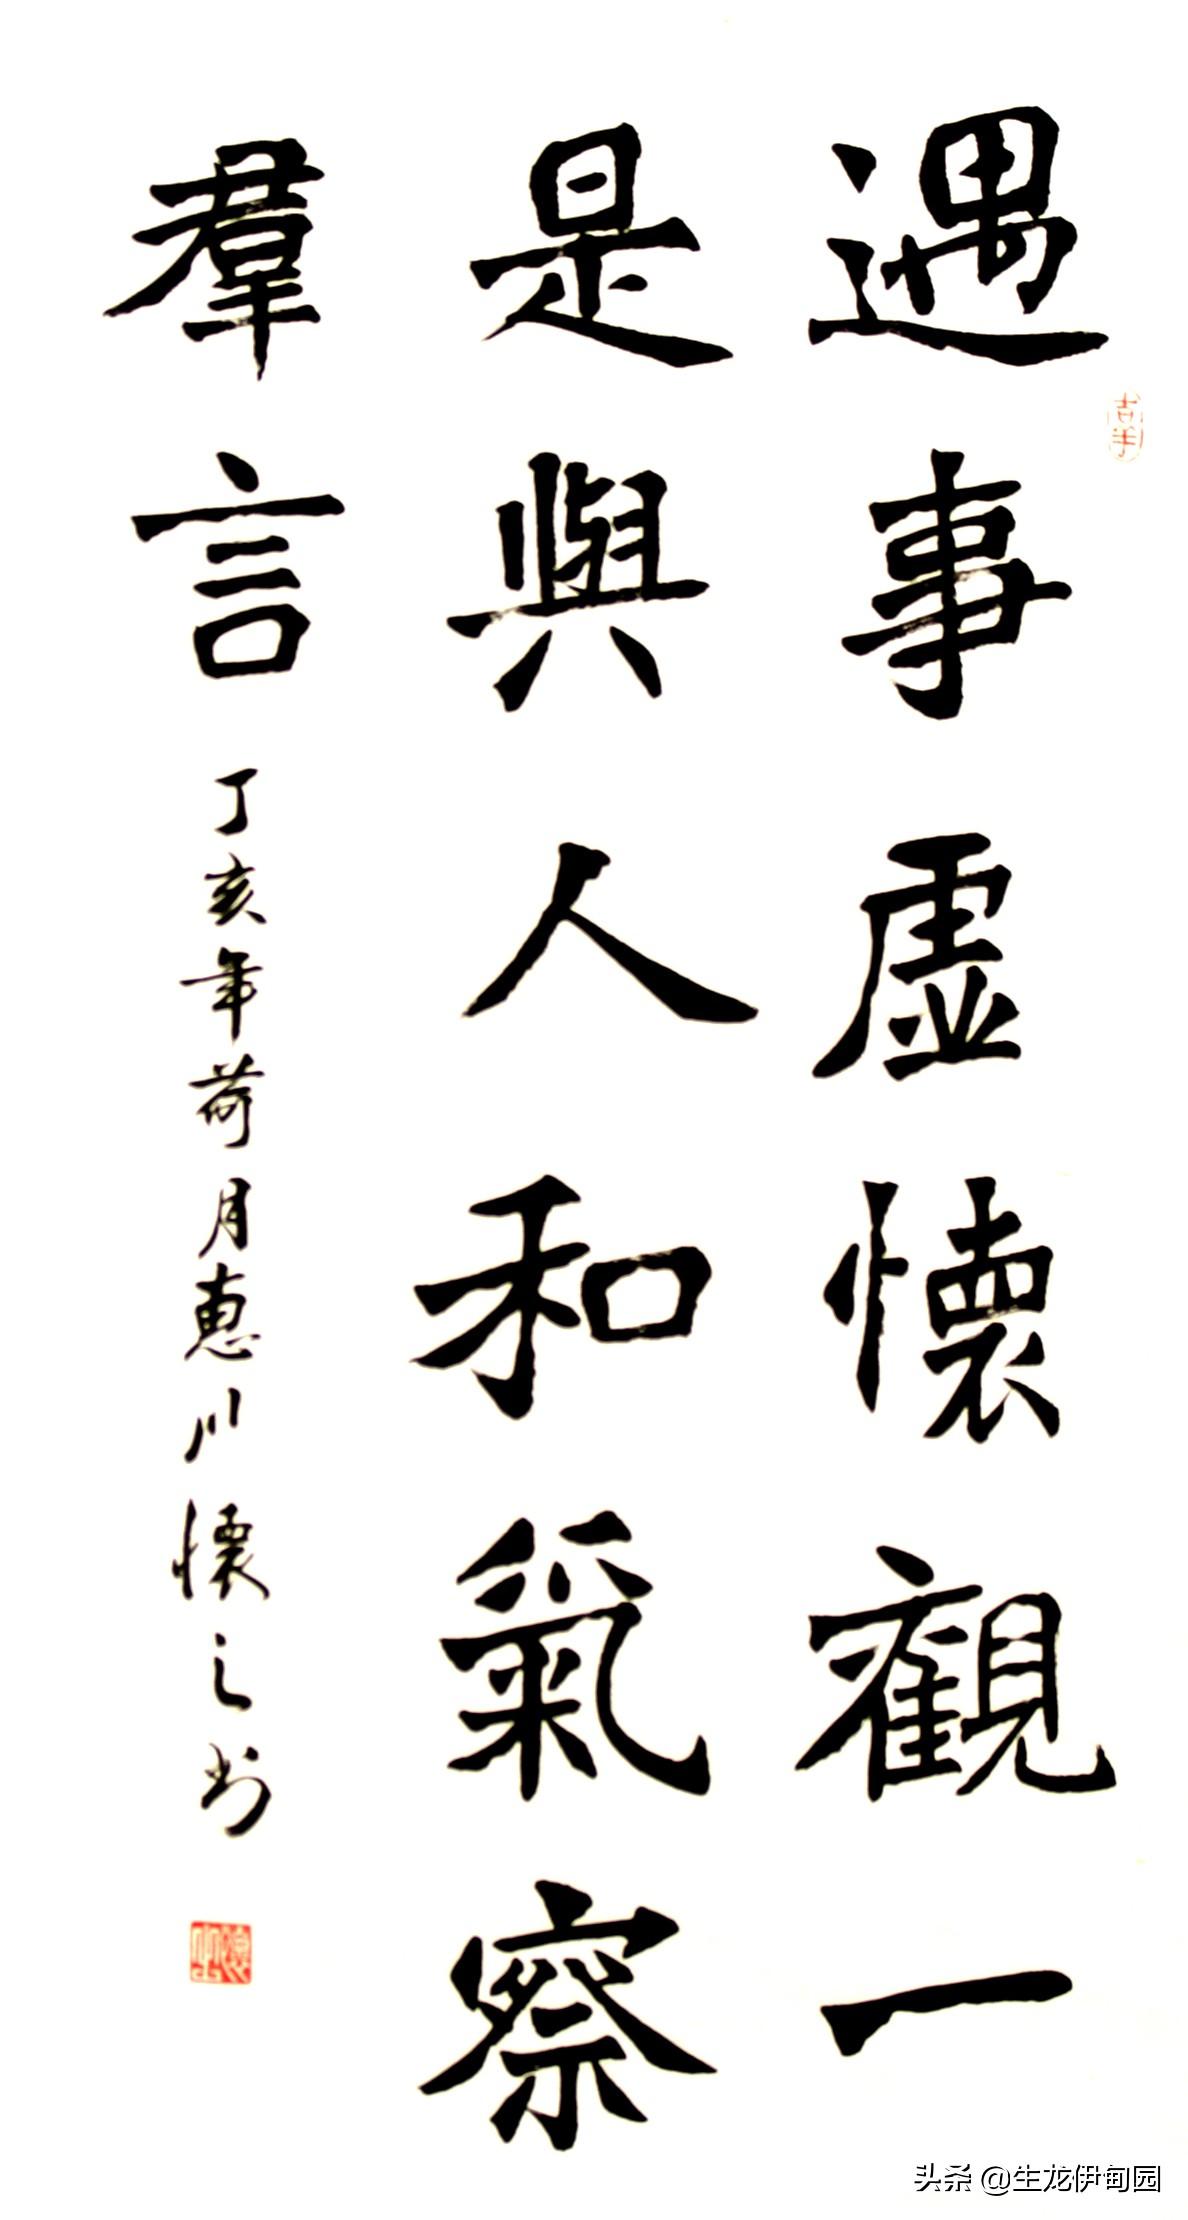 遇事虛懷觀一
是與人和氣察
羣言
丁亥年荷月惠川懷之书
吉羊
懷之
头条 @生龙伊甸园